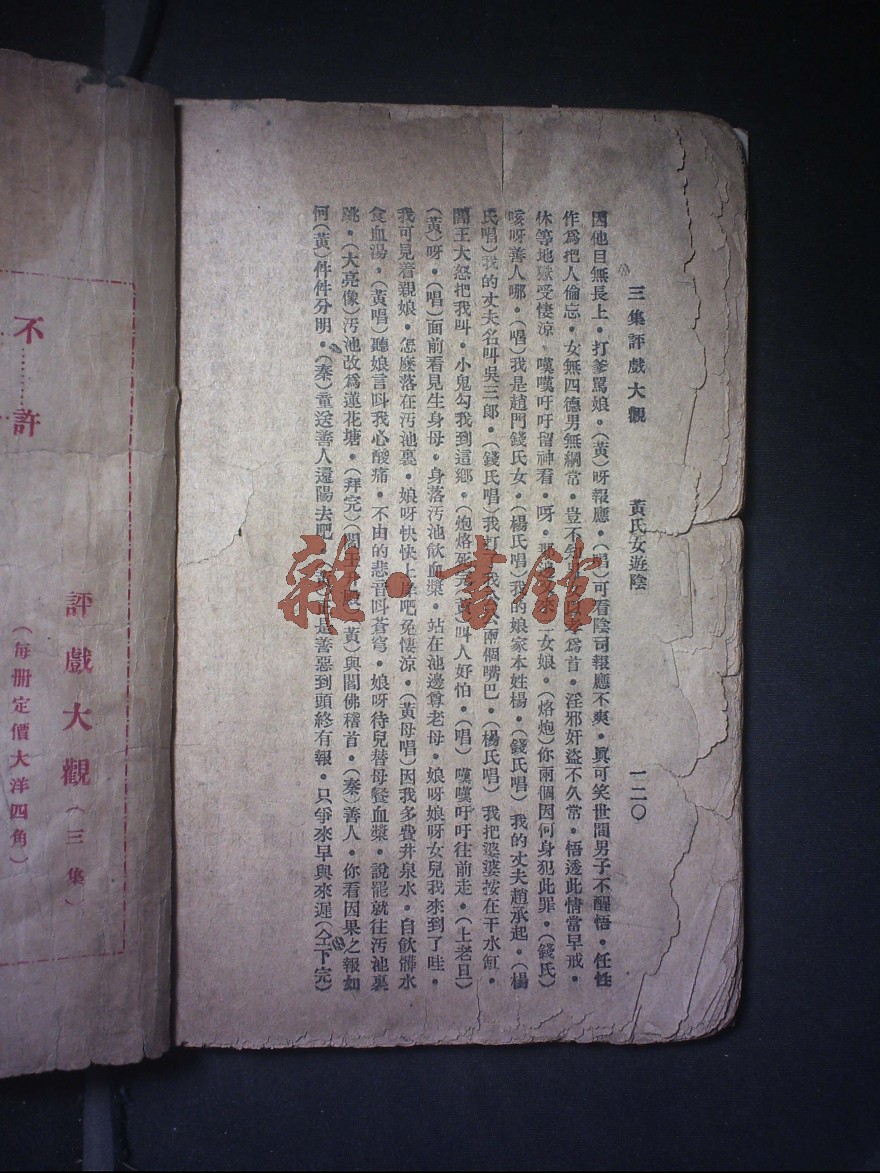 三集評戲大觀　黃氏女遊陰　一二〇
因他目無長上•打爹駡娘•(黃)呀報應•(唱)可看陰司報應不爽•眞可笑世間男子不醒悟•任性
作爲把人倫忘•女無四德男無綱常•豈不 爲首•淫邪奸盜不久常•悟透此情當早戒•
休等地獄受悽涼•嘆嘆吁吁留神看•呀• 二女娘•(烙炮)你兩個因何身犯此罪•(錢氏)
咳呀善人哪•(唱)我是趙門錢氏女•(楊氏唱)我的娘家本姓楊•(錢氏唱)我的丈夫趙承起•(楊
氏唱)我的丈夫名叫吳三郎•(錢氏唱)我打 兩個嘴巴•(楊氏唱)我把婆婆按在干水缸•
閻王大怒把我叫•小鬼勾我到這鄉•(炮烙死完)(黃)叫人好怕•(唱)嘆嘆吁吁往前走•(上老旦)
(黃)呀•(唱)面前看見生身母•身落汚池飲血漿•站在池邊尊老母•娘呀娘呀女兒我來到了哇•
我可見着親娘•怎麽落在汚池裏•娘呀快快上岸吧免悽涼•(黃母唱)因我多費井泉水•自飮髒水
食血湯•(黃唱)聽娘言呌我心酸痛•不由的悲音呌蒼穹•娘呀待兒替母餐血漿•說罷就往汚池裏
跳•(大亮像)汚池改爲蓮花塘•(拜完)(閻 黃)與閻佛稽首•(秦)善人•你看因果之報如
何(黃)件件分明•(秦)童送善人還陽去吧• 是善惡到頭終有報•只爭來早與來遲(仝下完)
不許
評戲大觀(三集)
(每册定價大洋四角)
雜·書館